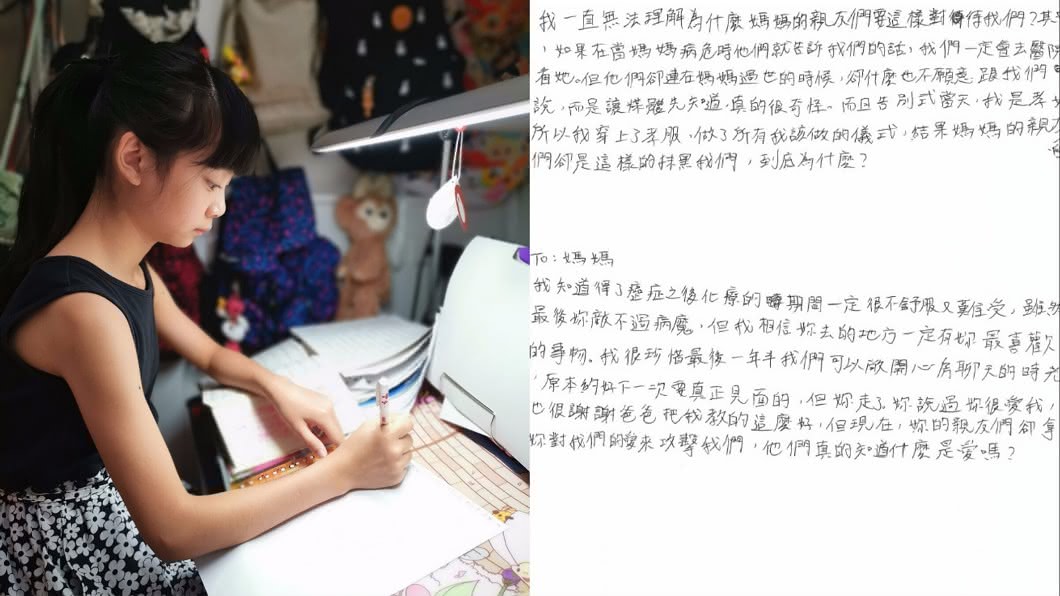 我一直無法理解為什麼媽媽的親友們要這樣對待我們?其
,如果在當媽媽病危時他們就告訴我們的話,我們一定會去醫院
看她。但他們卻連在媽媽過世的時候,卻什麼也不願意跟我們
說,而是讓媒體先知道,真的很奇怪。而且告別式當天,我是孝
所以我穿上了孝服,做了所有我該做的儀式,結果媽媽的親
們卻是這樣的抹黑我們,到底為什麼?
To:媽媽
我知道得了癌症之後化療的時期間一定很不舒服又難受,雖然
最後妳敵不過病魔,但我相信妳去的地方一定有妳最喜歡
的事物。我很珍惜最後一年半我們可以敞開心房聊天的時光
,原本約好下一次要真正見面的,但妳走了。妳說過妳很愛我,
也很謝謝爸爸把我教的這麼好,但現在,妳的親友們卻拿
妳對我們的愛來攻擊我們,他們真的知道什麼是愛嗎?